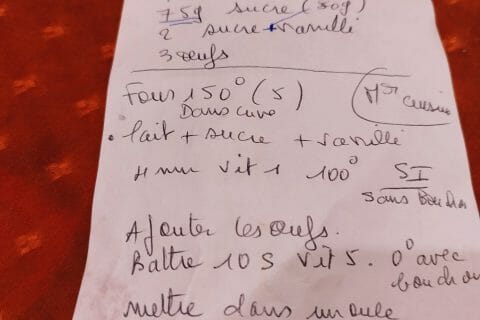 75g sucre (50g)
2 sucre vanillé
3 œufs
Four 150° (5)
Mr cuisine
Dans cuve
lait + sucre + vanillé
4 mn vit 1 100° SI
sans bouchon
Ajouter les œufs.
Battre 10 S Vit 5. 0° avec
bouchon
mettre dans un